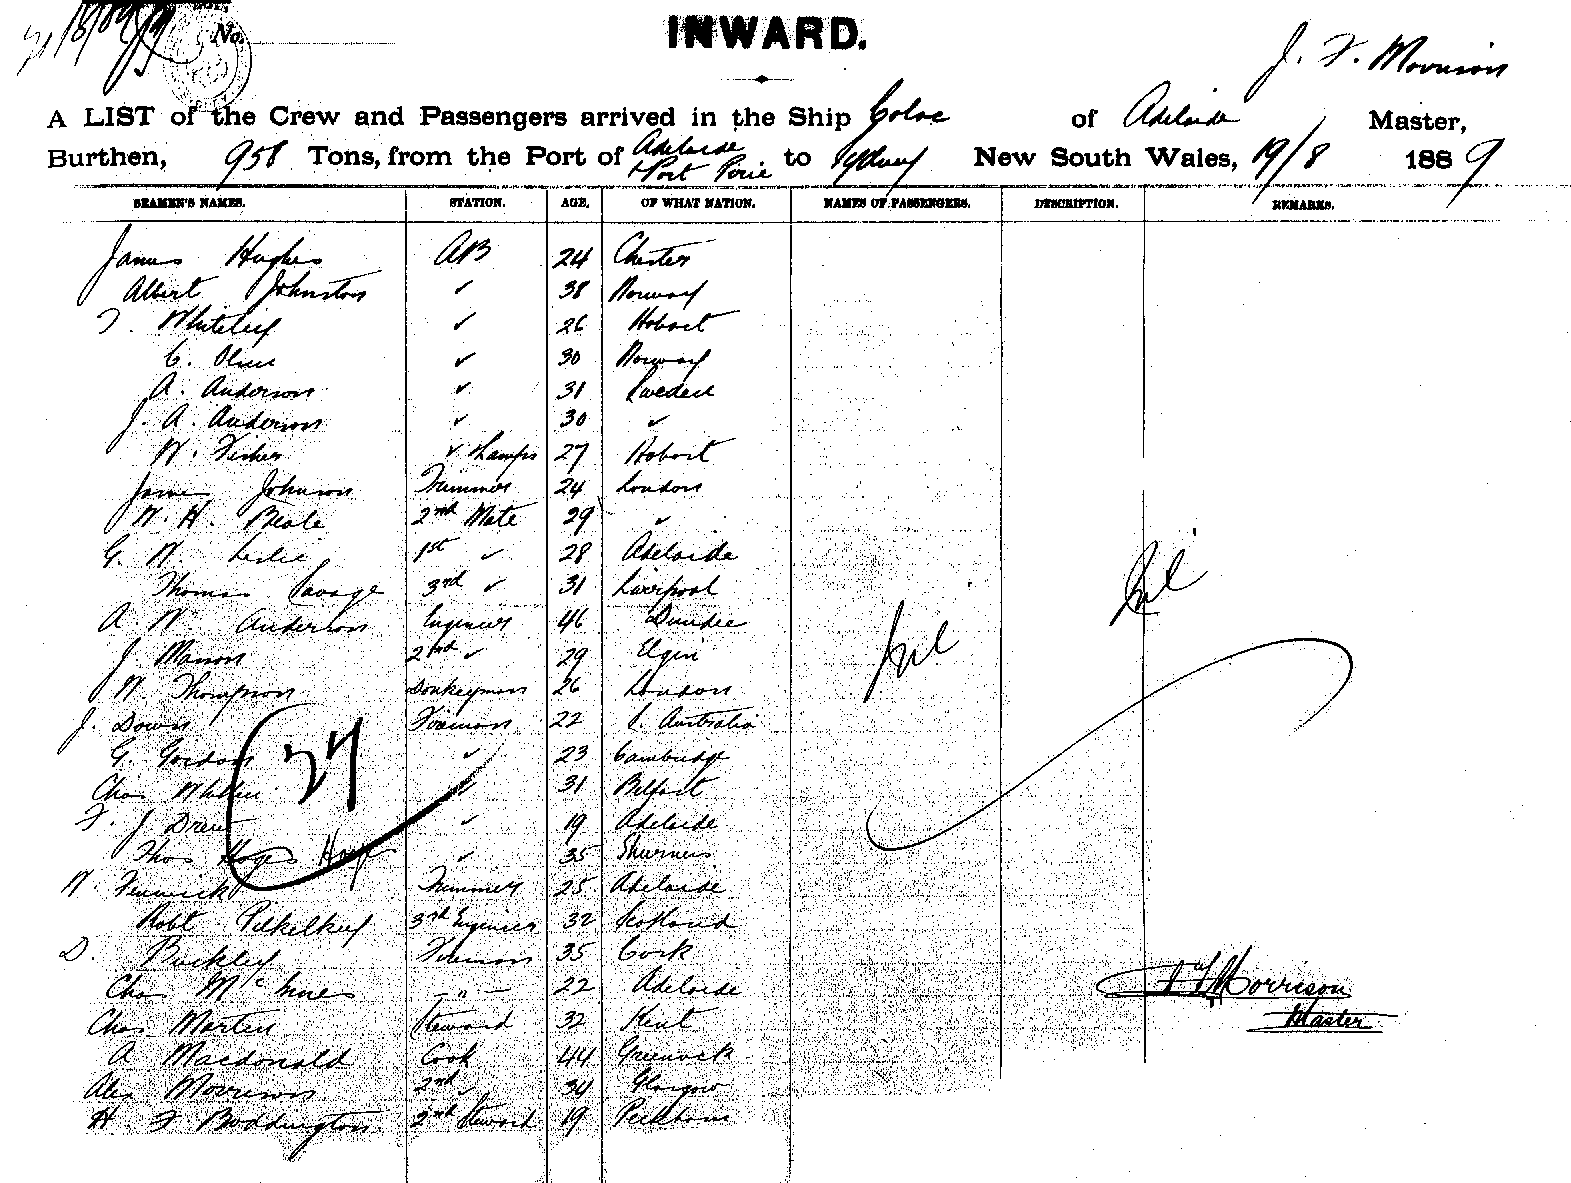 No.
INWARD.
J. F. Morrison
A LIST of the Crew and Passengers arrived in the Ship Colac of Adelaide Master,
Burthen, 958 Tons, from the Port of Adelaide + Port Pirie to Sydney New South Wales, 19/8 1889
SEAMEN'S NAMES. STATION. AGE. OF WHAT NATION. NAMES OF PASSENGERS. DESCRIPTION. REMARKS.
James Hughes AB 24 Chester
Albert Johnston 38 Norway
26 Hobart
C. Olsen 30 Norway
A. Anderson 31 Sweden
J. A. Anderson 30
W. Fisher Lamps 27 Hobart
James Johnson Trimmer 24 London
W. H. Beale 2nd Mate 29
G. W. Leslie 1st 28 Adelaide
Thomas Savage 3rd 31 Liverpool
A. W. Anderson Engineer 46 Dundee
J. 2nd 29 Elgin
W. Thompson Donkeyman 26 London
J. Down Fireman 22 S. Australia
G. Gordon 23 Cambridge
Chas 31 Belfast
F. J. Drew 19 Adelaide
Thos 35
W. Fenwick Trimmer 25 Adelaide
Robt 3rd Engineer 32 Scotland
D. Buckley Fireman 35 Cork
Chas McInnes -"- 22 Adelaide
Chas Martin Steward 32 Kent
A Macdonald Cook 44 Greenock
Alex Morrison 2nd 34 Glasgow
H F Boddington 2nd Steward 19 Peckham
27
Nil
Nil
J F Morrison
Master